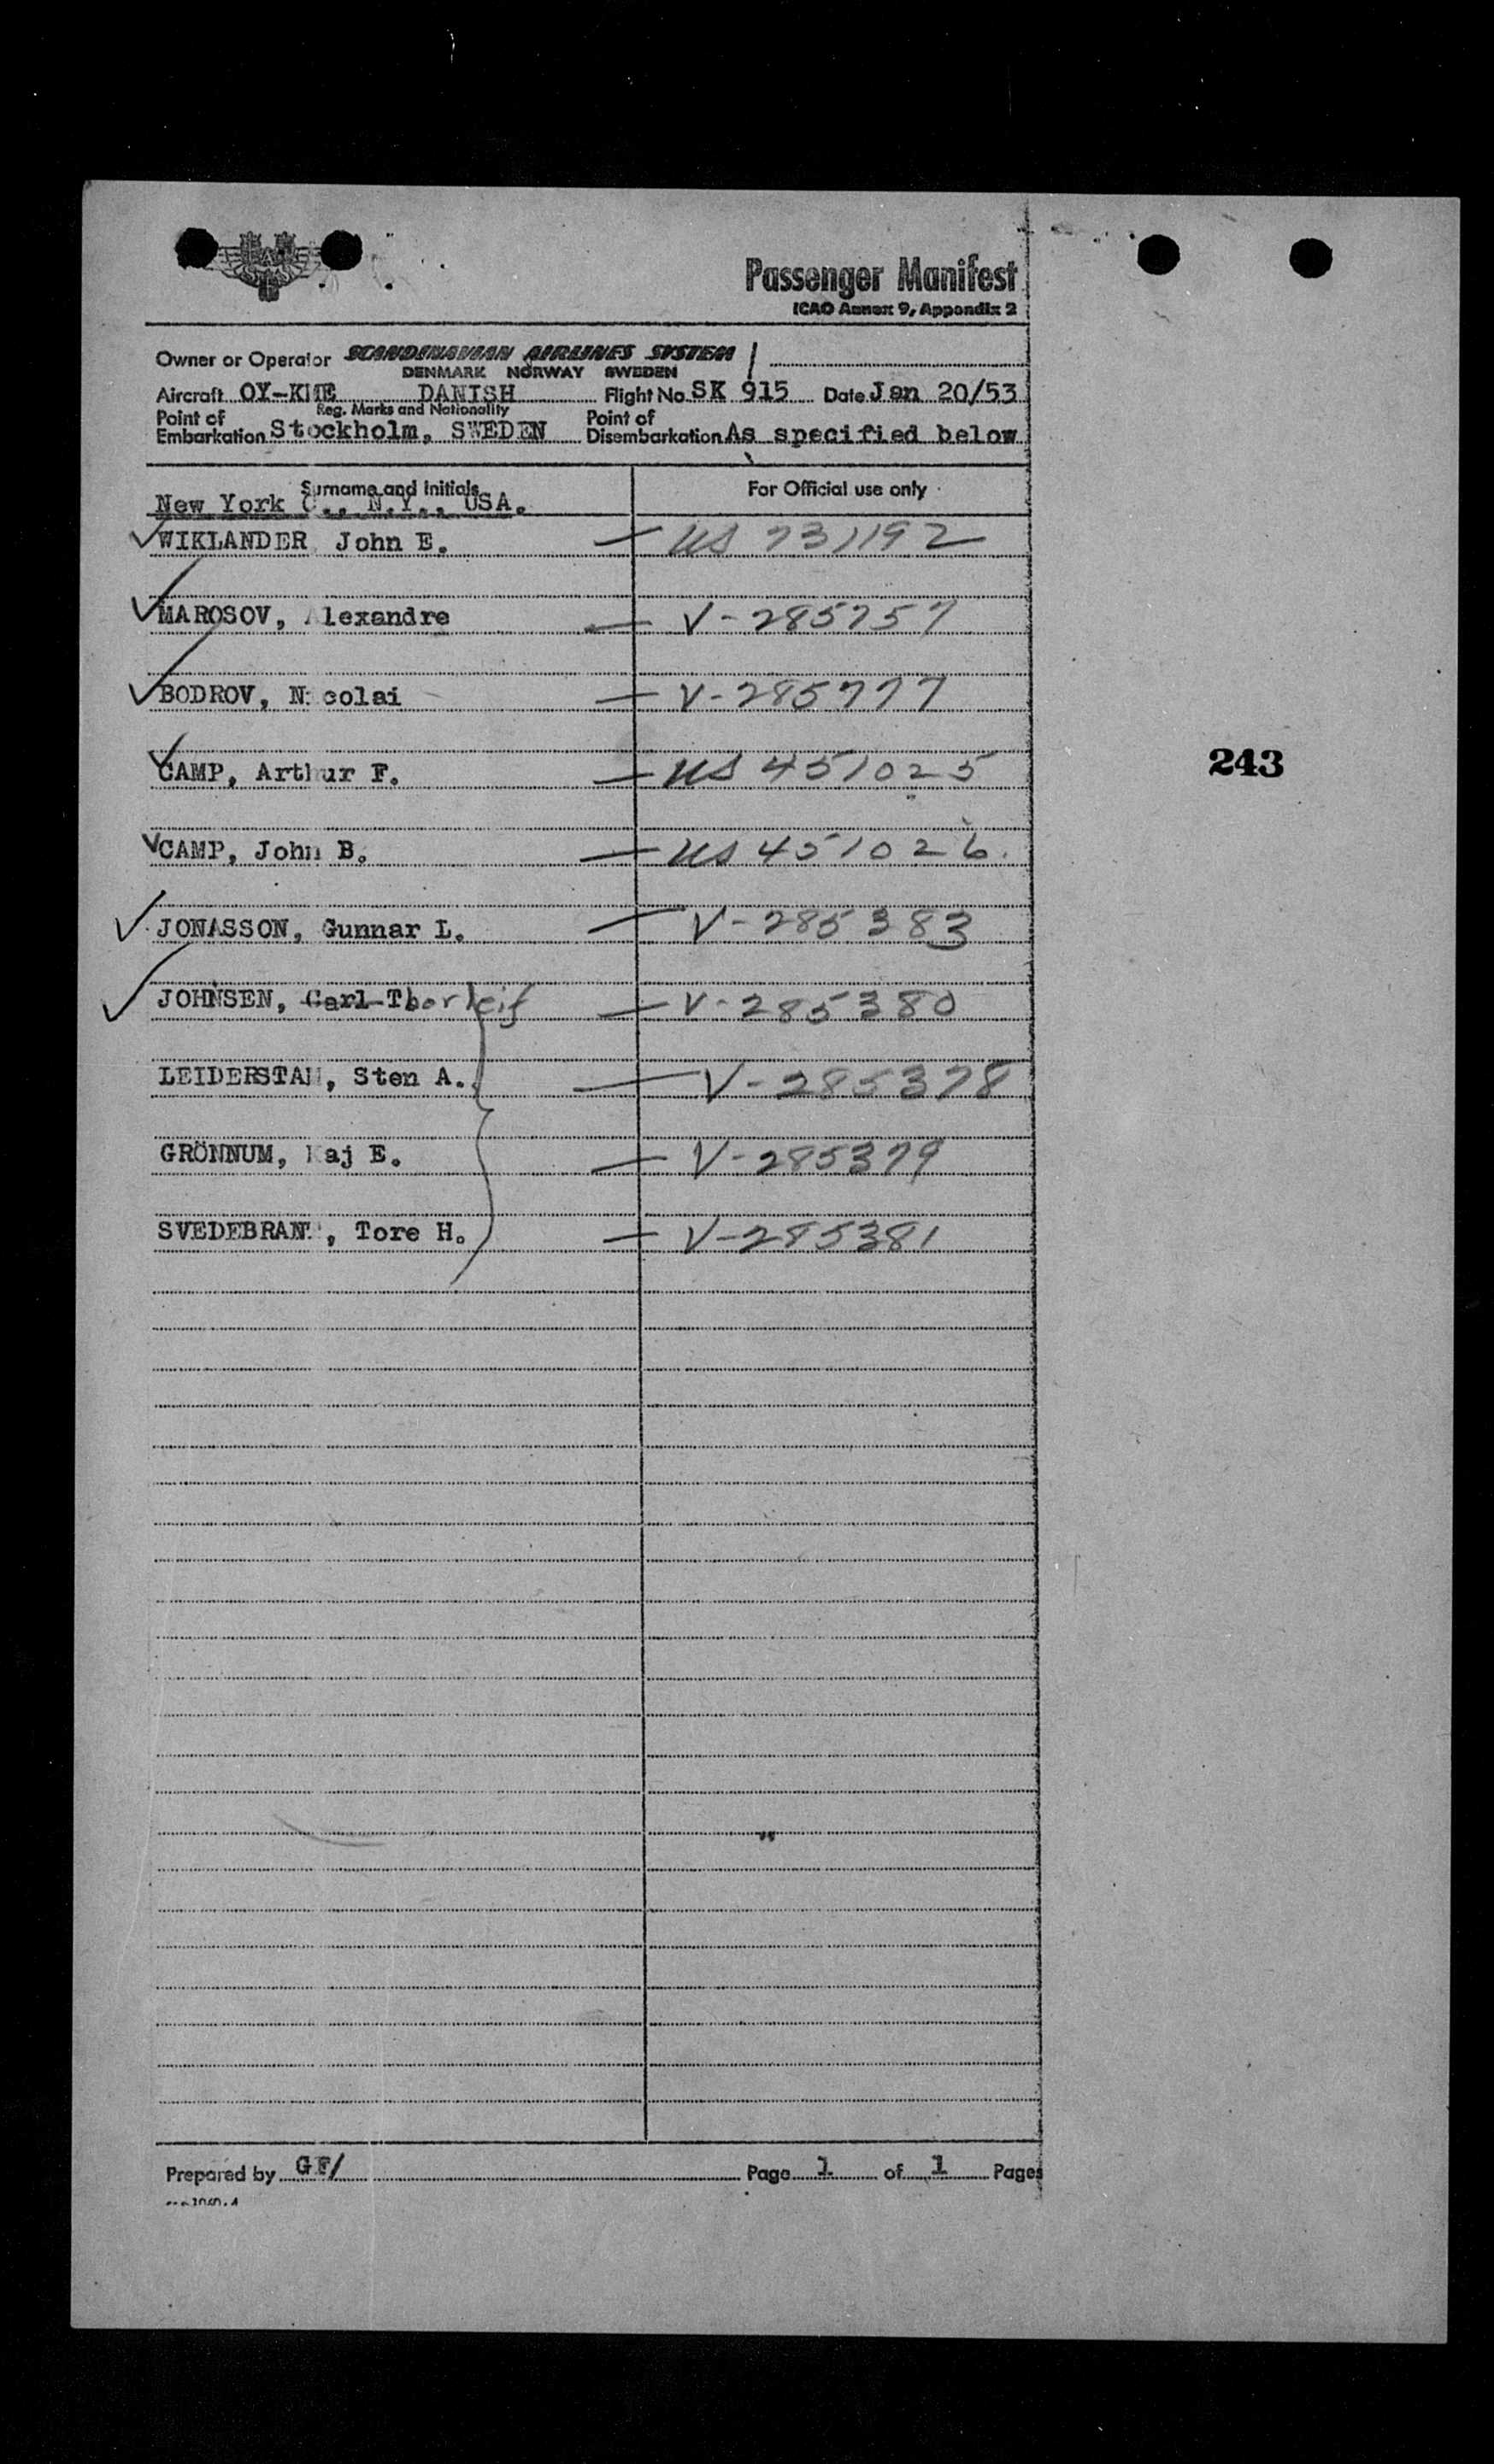 Passenger Manifest
ICAO Annex 9, Appendix 2
Owner or Operator SCANDINAVIAN AIRLINES SYSTEM
DENMARK NORWAY SWEDEN
Aircraft OY-KME DANISH Flight No. SK 915 Date Jan 20/53
Reg. Marks and Nationality
Point of Embarkation Stockholm, SWEDEN Point of Disembarkation As specified below
Surname and Initials For Official use only
New York C., N.Y., USA.
WIKLANDER John E. — US 731192
MAROSOV, Alexandre — V-285757
BODROV, Nicolai — V-285777
243
CAMP, Arthur F. — US 451025
CAMP, John B. — US 451026
JONASSON, Gunnar L. — V-285383
JOHNSEN, Carl-Thorleif — V-285380
LEIDERSTAM, Sten A. — V-285378
GRÖNNUM, Kaj E. — V-285379
SVEDEBRANT, Tore H. — V-285381
Prepared by GF/ Page 1 of 1 Pages